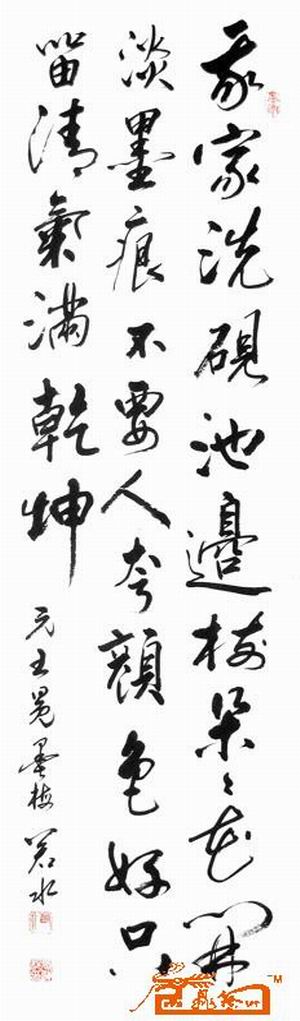 我家洗硯池邊樹朵々花開
淡墨痕不要人夸顏色好只
留清氣滿乾坤
元王冕墨梅 若水
TM